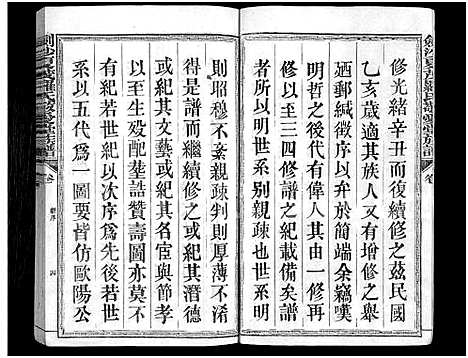 修光緒辛丑而後續修之茲民國
乙亥歲適其族人又有增修之舉
廼郵緘徵序以弁於簡端余竊嘆
明哲之後代有偉人其由一修再
修以至三四修紀載備矣譜
者所以明世系別親疎也世系明
則昭穆不紊親疎判則厚薄不淆
得是譜而繼續修之或紀其潛德
或紀其文藝或紀其名宦與節孝
以至生殁配塟誥贊壽圖亦莫不
有紀若世紀以次序為先後若世
系以五代為一圖要皆仿歐陽公